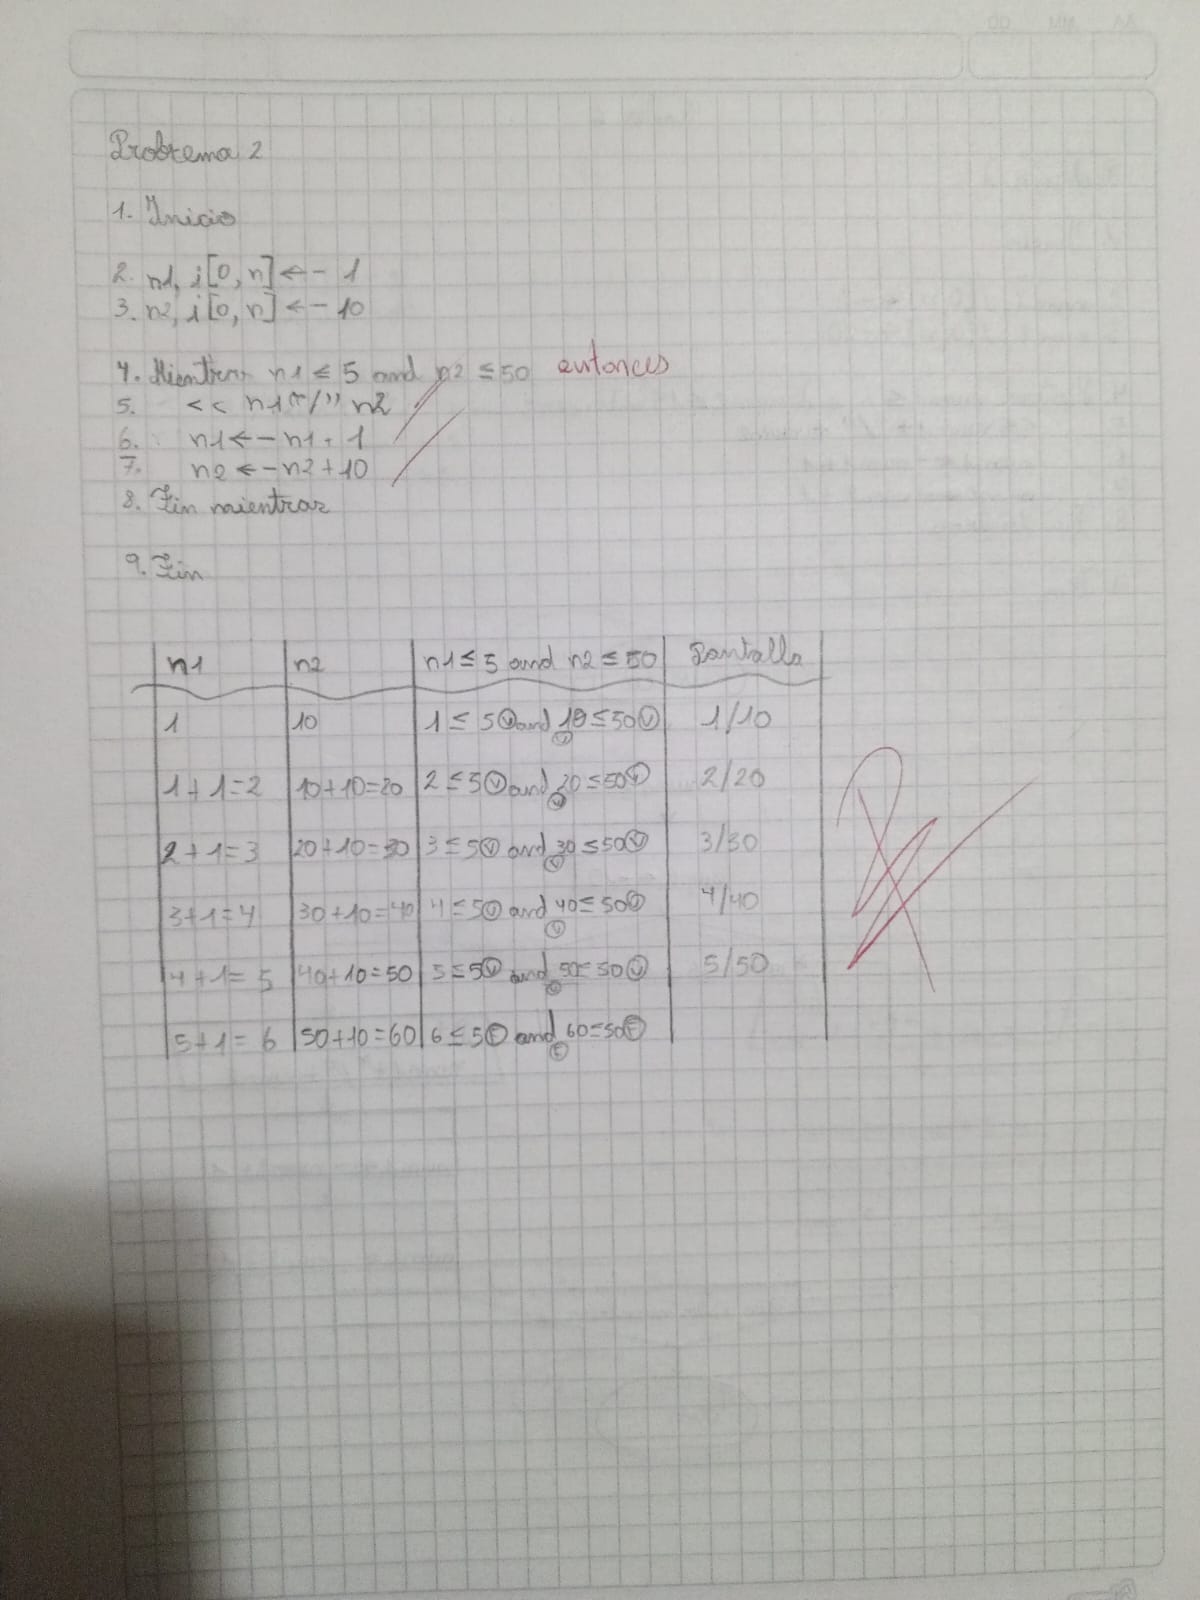 Problema 2
1. Inicio
2. n1, i[0, n] <- 1
3. n2, i[0, n] <- 10
4. Mientras n1 ≤ 5 and n2 ≤ 50 entonces
5. << n1 "/" n2
6. n1 <- n1 + 1
7. n2 <- n2 + 10
8. Fin mientras
9. Fin
n1 n2 n1 ≤ 5 and n2 ≤ 50 Pantalla
1 10 1 ≤ 5 Ⓥ and 10 ≤ 50 Ⓥ 1/10
Ⓥ
1+1=2 10+10=20 2 ≤ 5 Ⓥ and 20 ≤ 50 Ⓥ 2/20
Ⓥ
2+1=3 20+10=30 3 ≤ 5 Ⓥ and 30 ≤ 50 Ⓥ 3/30
Ⓥ
3+1=4 30+10=40 4 ≤ 5 Ⓥ and 40 ≤ 50 Ⓥ 4/40
Ⓥ
4+1=5 40+10=50 5 ≤ 5 Ⓥ and 50 ≤ 50 Ⓥ 5/50
Ⓥ
5+1=6 50+10=60 6 ≤ 5 Ⓕ and 60 = 50 Ⓕ
Ⓕ